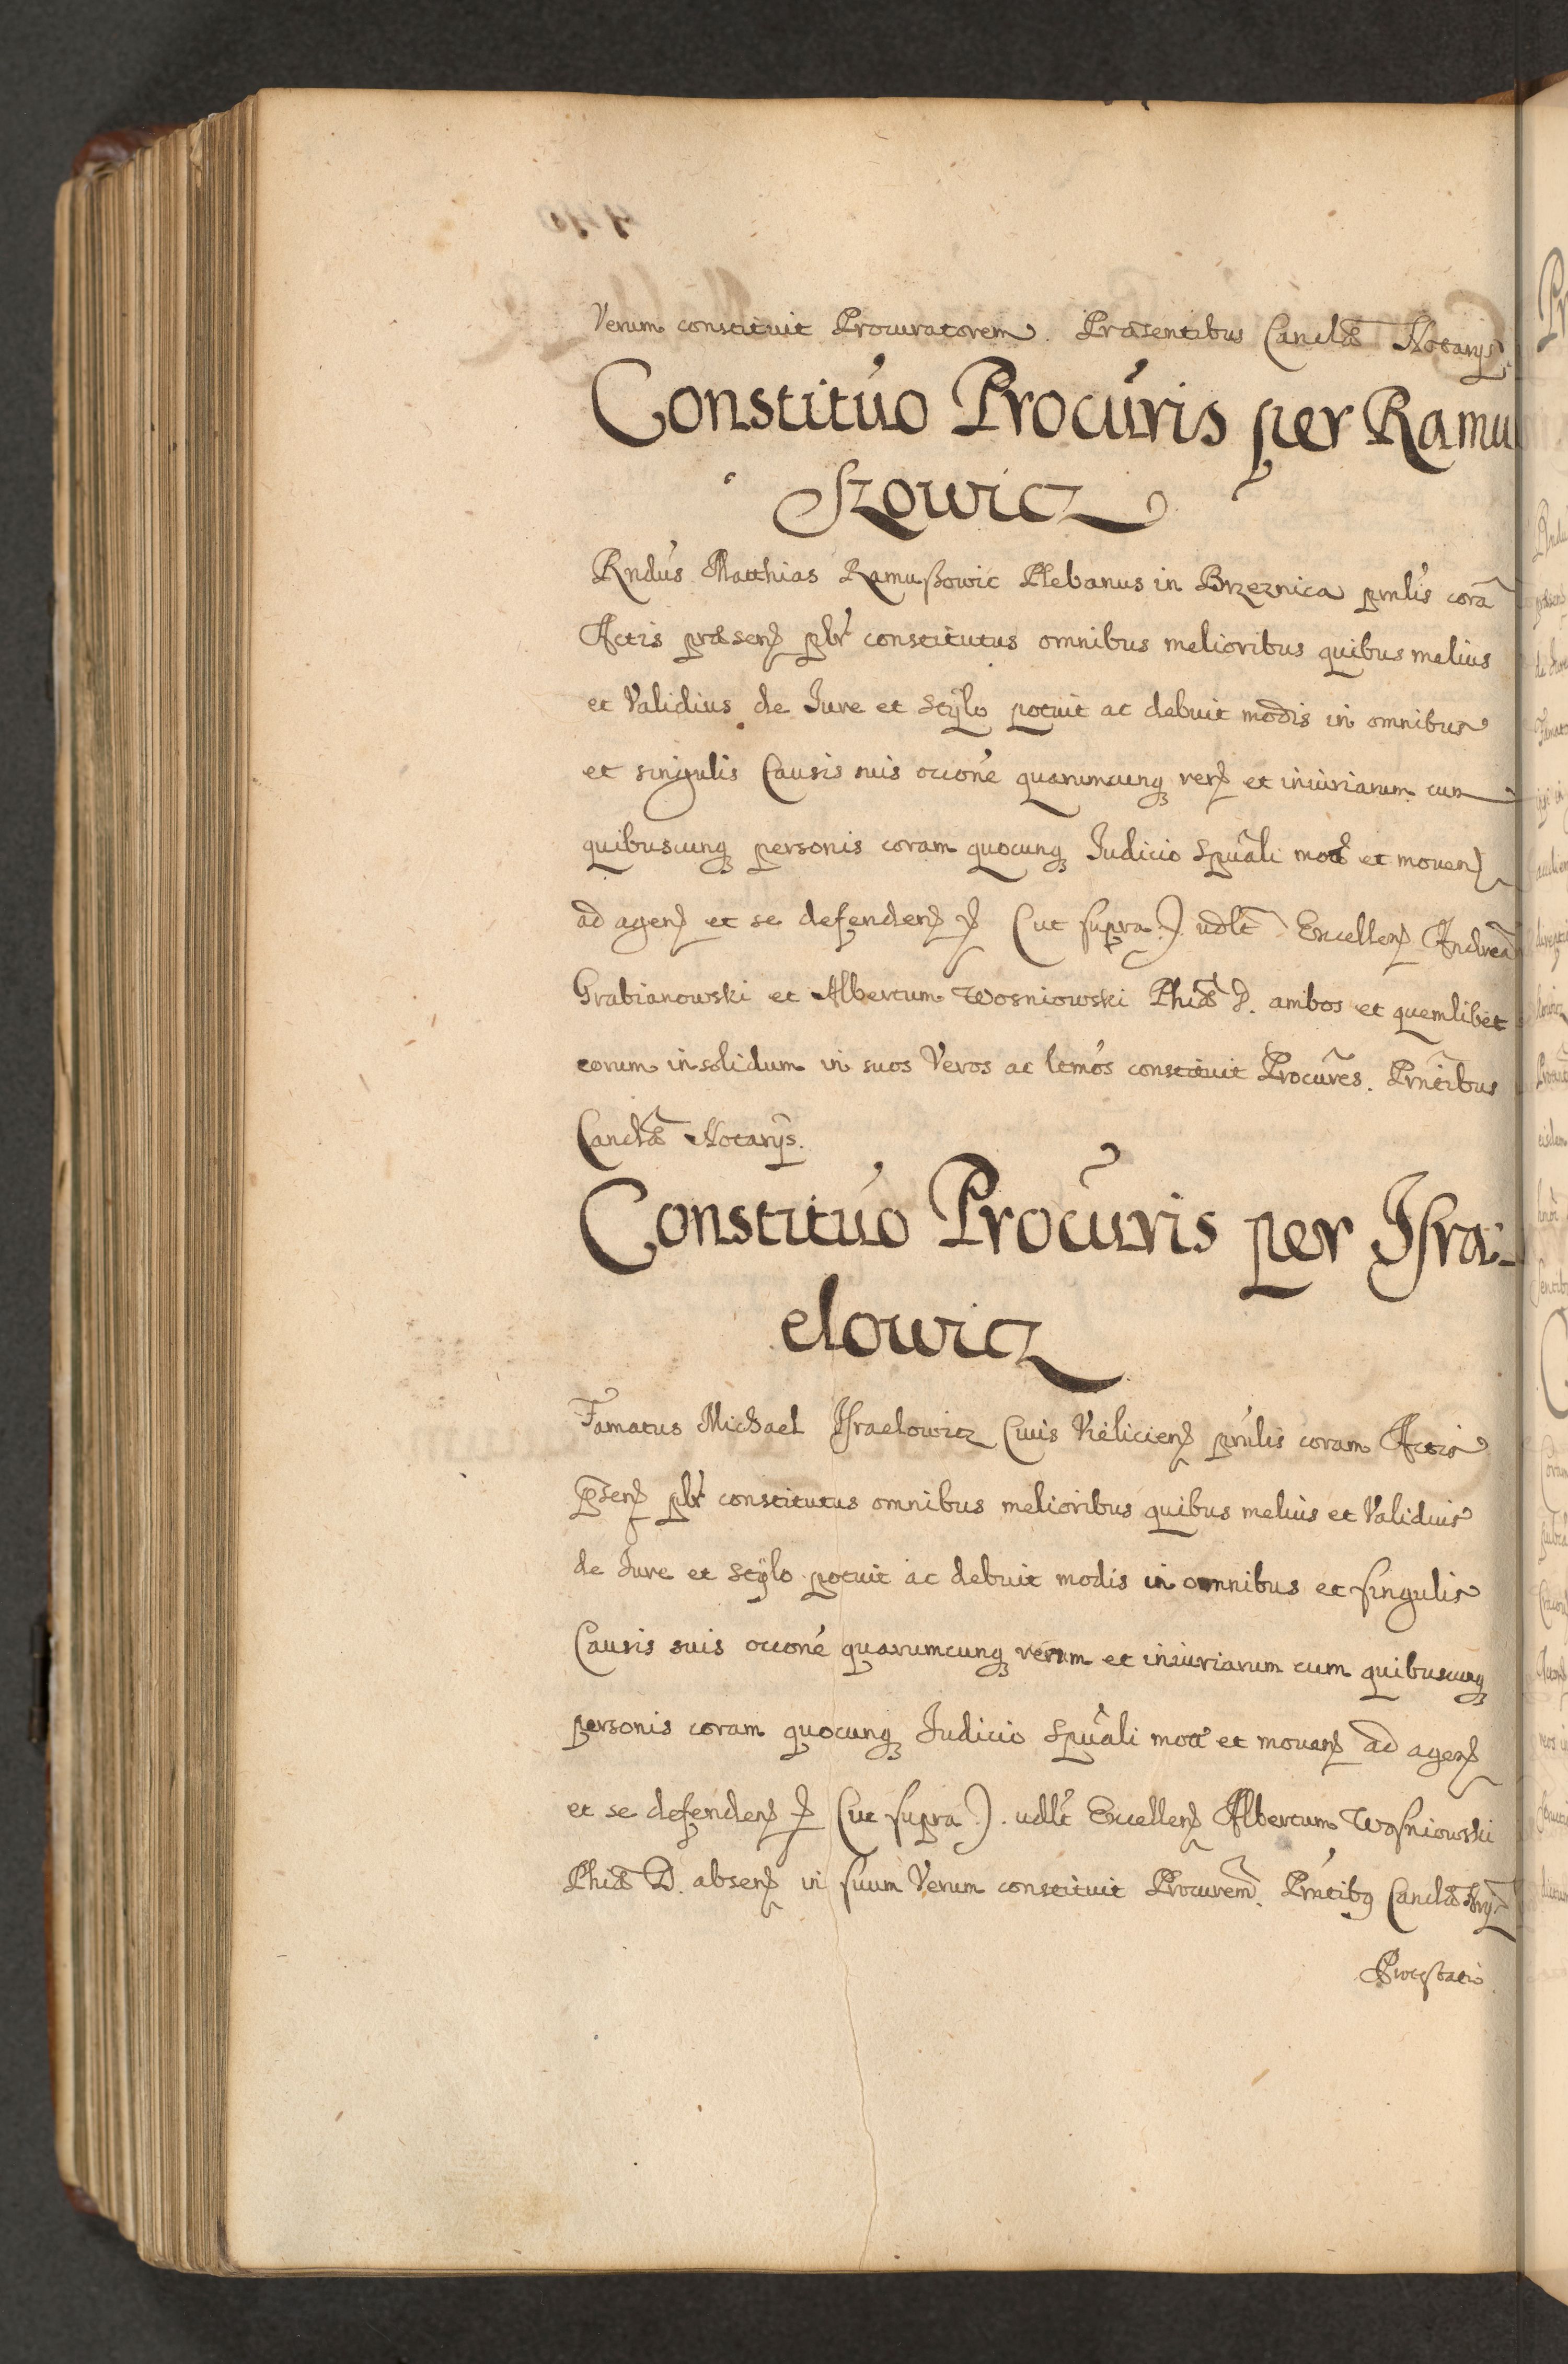 Verum constituit Procuratorem. Præsentibus Canclæ Notarijs.
Constituo Procuris per Ramu
szowicz
Rndus Matthias Ramuszowic Plebanus in Brzeznica prnlis corã
Actis præsen plr constitutus omnibus melioribus quibus melius
et Validius de Iure et Stÿlo potuit ac debuit modis in omnibus
et singulis Causis suis occone quarumcunq rer et iniuriarum cum
quibuscunq personis coram quocunq Iudicio Spuali mot et mouen
ad agen et se defenden (ut supra). udlt Excellen Andreã
Grabianowski et Albertum Wosniowski Phiæ D. ambos et quemlibet
eorum insolidum in suos Veros ac ltmos constituit Procures. Prntibus
Canclæ Notarijs.
Constituo Procuris per Isra:
elowicz
Famatus Michael Israelowicz Ciuis Kielicien prnlis coram Actis
psen plr constitutus omnibus melioribus quibus melius et Validius
de Iure et Stÿlo potuit ac debuit modis in omnibus et singulis
Causis suis occone quarumcunq rerum et iniuriarum cum quibuscunq
personis coram quocunq Iudicio Spuali mot et mouen ad agen
et se defenden (ut supra). udlt Excellen Albertum Wosniowski
Phiæ D. absen in suum Verum constituit Procurem. Prntibq Canclæ
Protestatio